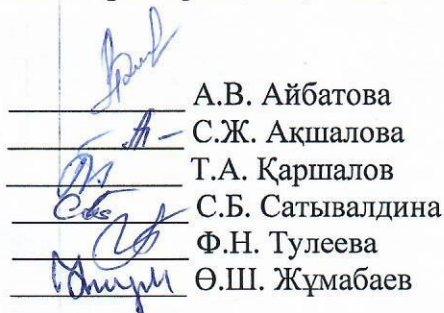 А.В. Айбатова
С.Ж. Ақшалова
Т.А. Қаршалов
С.Б. Сатывалдина
Ф.Н. Тулеева
Ө.Ш. Жұмабаев